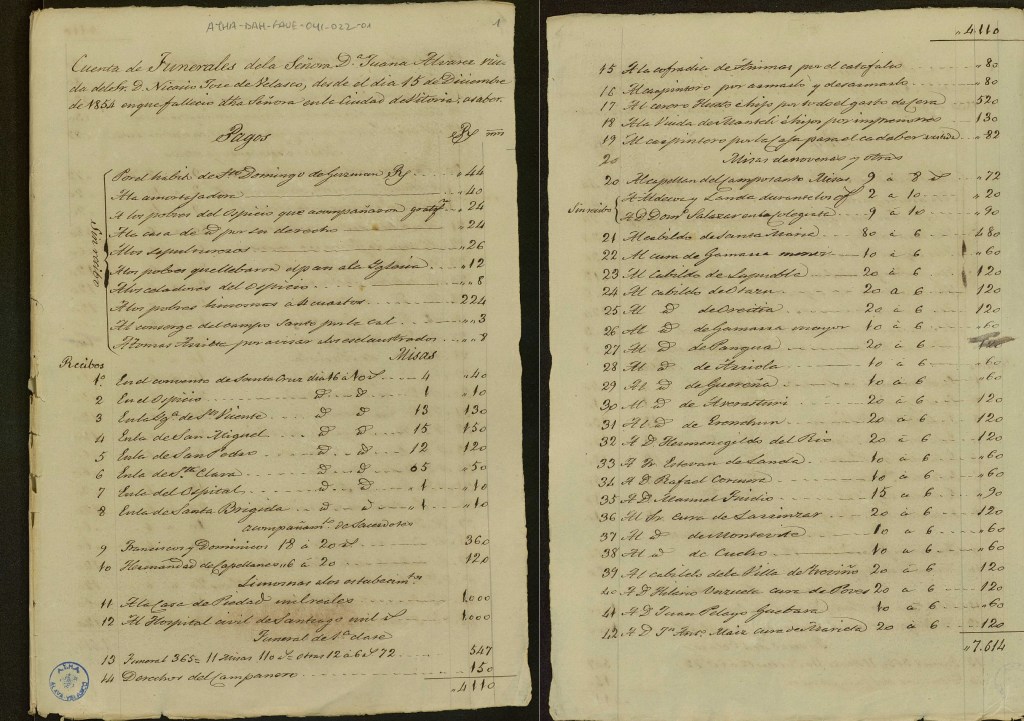 ATHA-DAH-FAVE-041-022-01
1
Cuenta de Funerales dela Señora Dª Juana Alvarez viu-
da del Sr. D. Nicasio Jose de Velasco, desde el dia 15 de Diciembre
de 1864 en que fallecio dha Señora en la Ciudad de Vitoria; asaber.
Pagos Rs mrs
Sin recibo
Por el habito de Sto Domingo de Guzman Rs ,, 44
Ala amortajadora ,, 40
A los pobres del Ospicio que acompañaron gratifn ,, 24
Ala casa de id por su derecho ,, 24
Alos sepultureros ,, 26
Alos pobres que llebaron el pan ala Yglesia ,, 12
Alos celadores del Ospicio ,, 8
Alos pobres limosnas a 4 cuartos 224
Al conserge del campo Santo por la cal ,, 3
A Tomas por avisar a los esclaustrados ,, 8
Recibos Misas
1º En el convento de Santa Cruz dia 16 á 10 rs 4 ,, 40
2 En el Ospicio id id 1 ,, 10
3 En la Yga de Sn Vicente id id 13 130
4 En la de San Miguel id id 15 150
5 En la de San Pedro id id 12 120
6 En la de Sta Clara id id 05 ,, 50
7 En la del Ospital id id ,, 1 ,, 10
8 En la de Santa Brigida id id ,, 1 ,, 10
acompañamto de Sacerdotes
9 Franciscos y Dominicos 18 á 20 rs 360
10 Hermandad de Capellanes ,, 6 á 20 120
Limosnas a los establecimtos
11 A la Casa de Piedad mil reales 1,000
12 Al Hospital civil de Santiago mil rs 1,000
Funeral de 1ª clase
13 Funeral 365 = 11 Misas 110 rs = otras 12 á 6 rs 72 547
14 Derechos del Campanero 150
,, 4110
ATHA
,, 4110
15 A la cofradia de Animas por el catafalco ,, 80
16 Al carpintero por armarlo y desarmarlo ,, 80
17 Al cerero Hueto é hijo por todo el gasto de Cera 520
18 A la Viuda de Manteli é hijos por impresiones 130
19 Al carpintero por la Caja para el cadaber ,, 82
20 Misas de novenas y otras
20 Al capellan del Camposanto Misas 9 á 8 rs ,, 72
Sin recibo
A Aldecoa y Landa durante los 2 á 10 ,, 20
A D. Domo Salazar en la Colegiata 9 á 10 ,, 90
21 Al cabildo de Santa Maria 80 á 6 480
22 Al cura de Gamarra menor 10 á 6 ,, 60
23 Al Cabildo de 20 á 6 120
24 Al cabildo de Otazu 20 a 6 120
25 Al id de 20 á 6 120
26 Al id de Gamarra mayor 10 á 6 ,, 60
27 Al id de Pangua 20 á 6
28 Al id de Arriola 10 á 6 ,, 60
29 Al id de Guereña 10 á 6 ,, 60
30 Al id de Averasturi 20 á 6 120
31 Al id de Eronchun 20 á 6 120
32 A D. Hermenegildo del Rio 20 á 6 120
33 A Dn Estevan de Landa 10 á 6 ,, 60
34 A D. Rafael 10 á 6 ,, 60
35 A D. Manuel 15 á 6 ,, 90
36 Al Sr. cura de Larrinzar 20 a 6 120
37 Al id de Montevite 10 á 6 ,, 60
38 Al id de Cucho 10 á 6 ,, 60
39 Al cabildo dela Villa de Treviño 20 á 6 120
40 A D. cura de Poves 20 á 6 120
41 A D. Juan Pelayo Guebara 10 á 6 ,, 60
42 A D. cura de 20 á 6 ,, 120
,, 7.614